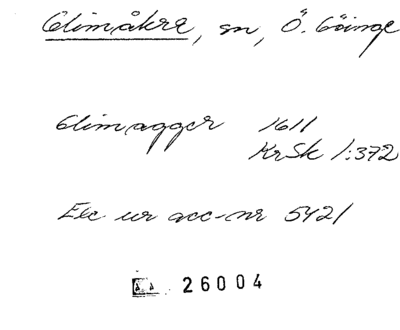 Glimåkra, sn, Ö. Göinge
Glimagger 1611
KrSk 1:372
Exc. ur acc-nr 5421
26004